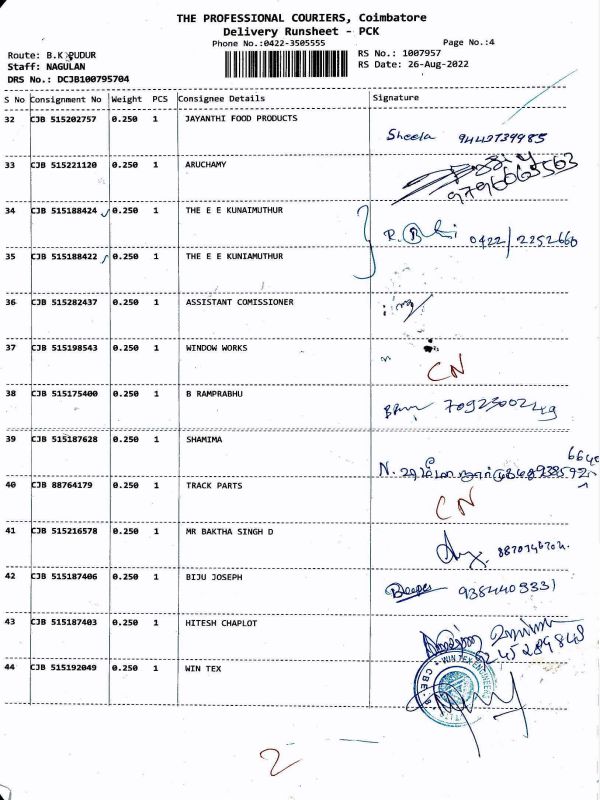 THE PROFESSIONAL COURIERS, Coimbatore
Delivery Runsheet - PCK
Phone No.:0422-3505555
Page No.:4
Route: B.K PUDUR
RS No.: 1007957
Staff: NAGULAN
RS Date: 26-Aug-2022
DRS No.: DCJB100795704
S No Consignment No Weight PCS Consignee Details Signature
32 CJB 515202757 0.250 1 JAYANTHI FOOD PRODUCTS
Sheela 9442739985
33 CJB 515221120 0.250 1 ARUCHAMY
34 CJB 515188424 0.250 1 THE E E KUNAIMUTHUR
0422/2252660
35 CJB 515188422 0.250 1 THE E E KUNIAMUTHUR
36 CJB 515282437 0.250 1 ASSISTANT COMISSIONER
37 CJB 515198543 0.250 1 WINDOW WORKS
CN
38 CJB 515175400 0.250 1 B RAMPRABHU
39 CJB 515187628 0.250 1 SHAMIMA
40 CJB 88764179 0.250 1 TRACK PARTS
CN
41 CJB 515216578 0.250 1 MR BAKTHA SINGH D
42 CJB 515187406 0.250 1 BIJU JOSEPH
9384403331
43 CJB 515187403 0.250 1 HITESH CHAPLOT
44 CJB 515192049 0.250 1 WIN TEX
WIN TEX ENGINEERS
2